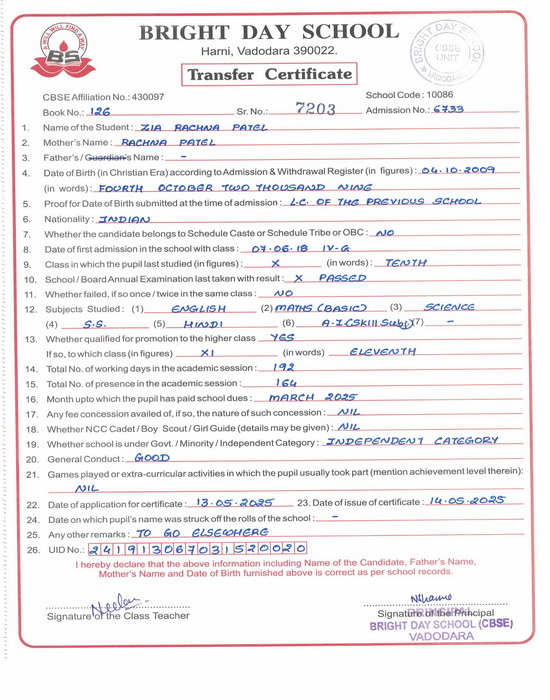 A WILL WILL FIND A WAY
BS
BRIGHT DAY SCHOOL
Harni, Vadodara 390022.
Transfer Certificate
BRIGHT DAY SCHOOL
CBSE
UNIT
★ VADODARA ★
CBSE Affiliation No.: 430097 School Code : 10086
Book No.: 126 Sr. No.: 7203 Admission No.: 6733
1. Name of the Student : ZIA RACHNA PATEL
2. Mother's Name : RACHNA PATEL
3. Father's / Guardian's Name : -
4. Date of Birth (in Christian Era) according to Admission & Withdrawal Register (in figures) : 04.10.2009
(in words) : FOURTH OCTOBER TWO THOUSAND NINE
5. Proof for Date of Birth submitted at the time of admission : L.C. OF THE PREVIOUS SCHOOL
6. Nationality : INDIAN
7. Whether the candidate belongs to Schedule Caste or Schedule Tribe or OBC : NO
8. Date of first admission in the school with class : 07.06.18 IV-G
9. Class in which the pupil last studied (in figures) : X (in words) : TENTH
10. School / Board Annual Examination last taken with result : X PASSED
11. Whether failed, if so once / twice in the same class : NO
12. Subjects Studied : (1) ENGLISH (2) MATHS (BASIC) (3) SCIENCE
(4) S.S. (5) HINDI (6) A.I (SKIll Subj) (7) -
13. Whether qualified for promotion to the higher class YES
If so, to which class (in figures) XI (in words) ELEVENTH
14. Total No. of working days in the academic session : 192
15. Total No. of presence in the academic session : 164
16. Month upto which the pupil has paid school dues : MARCH 2025
17. Any fee concession availed of, if so, the nature of such concession : NIL
18. Whether NCC Cadet / Boy Scout / Girl Guide (details may be given) : NIL
19. Whether school is under Govt. / Minority / Independent Category : INDEPENDENT CATEGORY
20. General Conduct : GOOD
21. Games played or extra-curricular activities in which the pupil usually took part (mention achievement level therein) :
NIL
22. Date of application for certificate : 13.05.2025 23. Date of issue of certificate : 14.05.2025
24. Date on which pupil's name was struck off the rolls of the school : -
25. Any other remarks : TO GO ELSEWHERE
26. UID No.: 241913067031520020
I hereby declare that the above information including Name of the Candidate, Father's Name,
Mother's Name and Date of Birth furnished above is correct as per school records.
Signature of the Class Teacher Signature of the Principal
PRINCIPAL
BRIGHT DAY SCHOOL (CBSE)
VADODARA